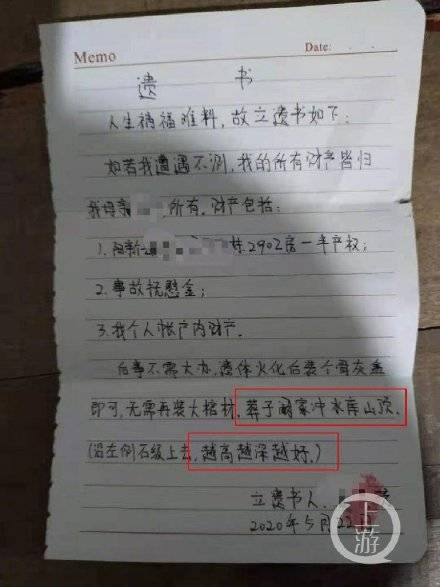 Memo
Date:
遗 书
人生祸福难料，故立遗书如下：
如若我遭遇不测，我的所有财产皆归
我母亲 所有，财产包括：
1. 栋2902房一半产权；
2.事故抚慰金；
3.我个人帐户内财产。
后事不需大办，遗体火化后装个骨灰盒
即可，无需再装大棺材，葬于阚家冲水库山顶，
（沿左侧石级上去，越高越深越好。）
立遗书人：
2020年5月22日
上游